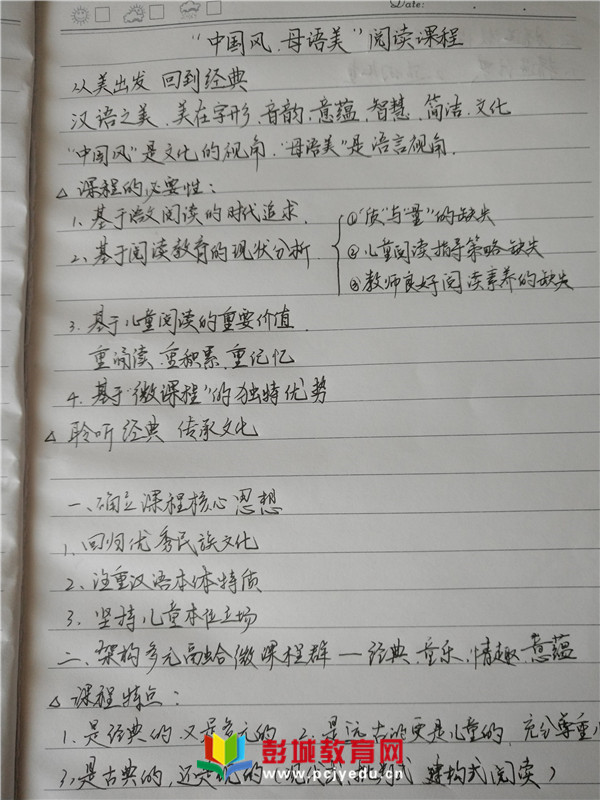 Date:
“中国风、母语美”阅读课程
从美出发 回到经典
汉语之美、美在字形、音韵、意蕴、智慧、简洁、文化
“中国风”是文化的视角、“母语美”是语言视角.
△ 课程的必要性:
1、基于语文阅读的时代追求.
2、基于阅读教育的现状分析
①“质”与“量”的缺失
②儿童阅读指导策略缺失
③教师良好阅读素养的缺失
3、基于儿童阅读的重要价值.
重诵读、重积累、重记忆
4、基于“微课程”的独特优势
△ 聆听经典 传承文化
一、确立课程核心思想
1、回归优秀民族文化
2、注重汉语本体特质
3、坚持儿童本位立场
二、架构多元融合微课程群 — 经典、音乐、情趣、意蕴
△ 课程特点:
1、是经典的,又是多元的 2、是远古的更是儿童的, 充分尊重
3、是古典的,还是现 建构式阅读)
彭城教育网
www.pcjye.com